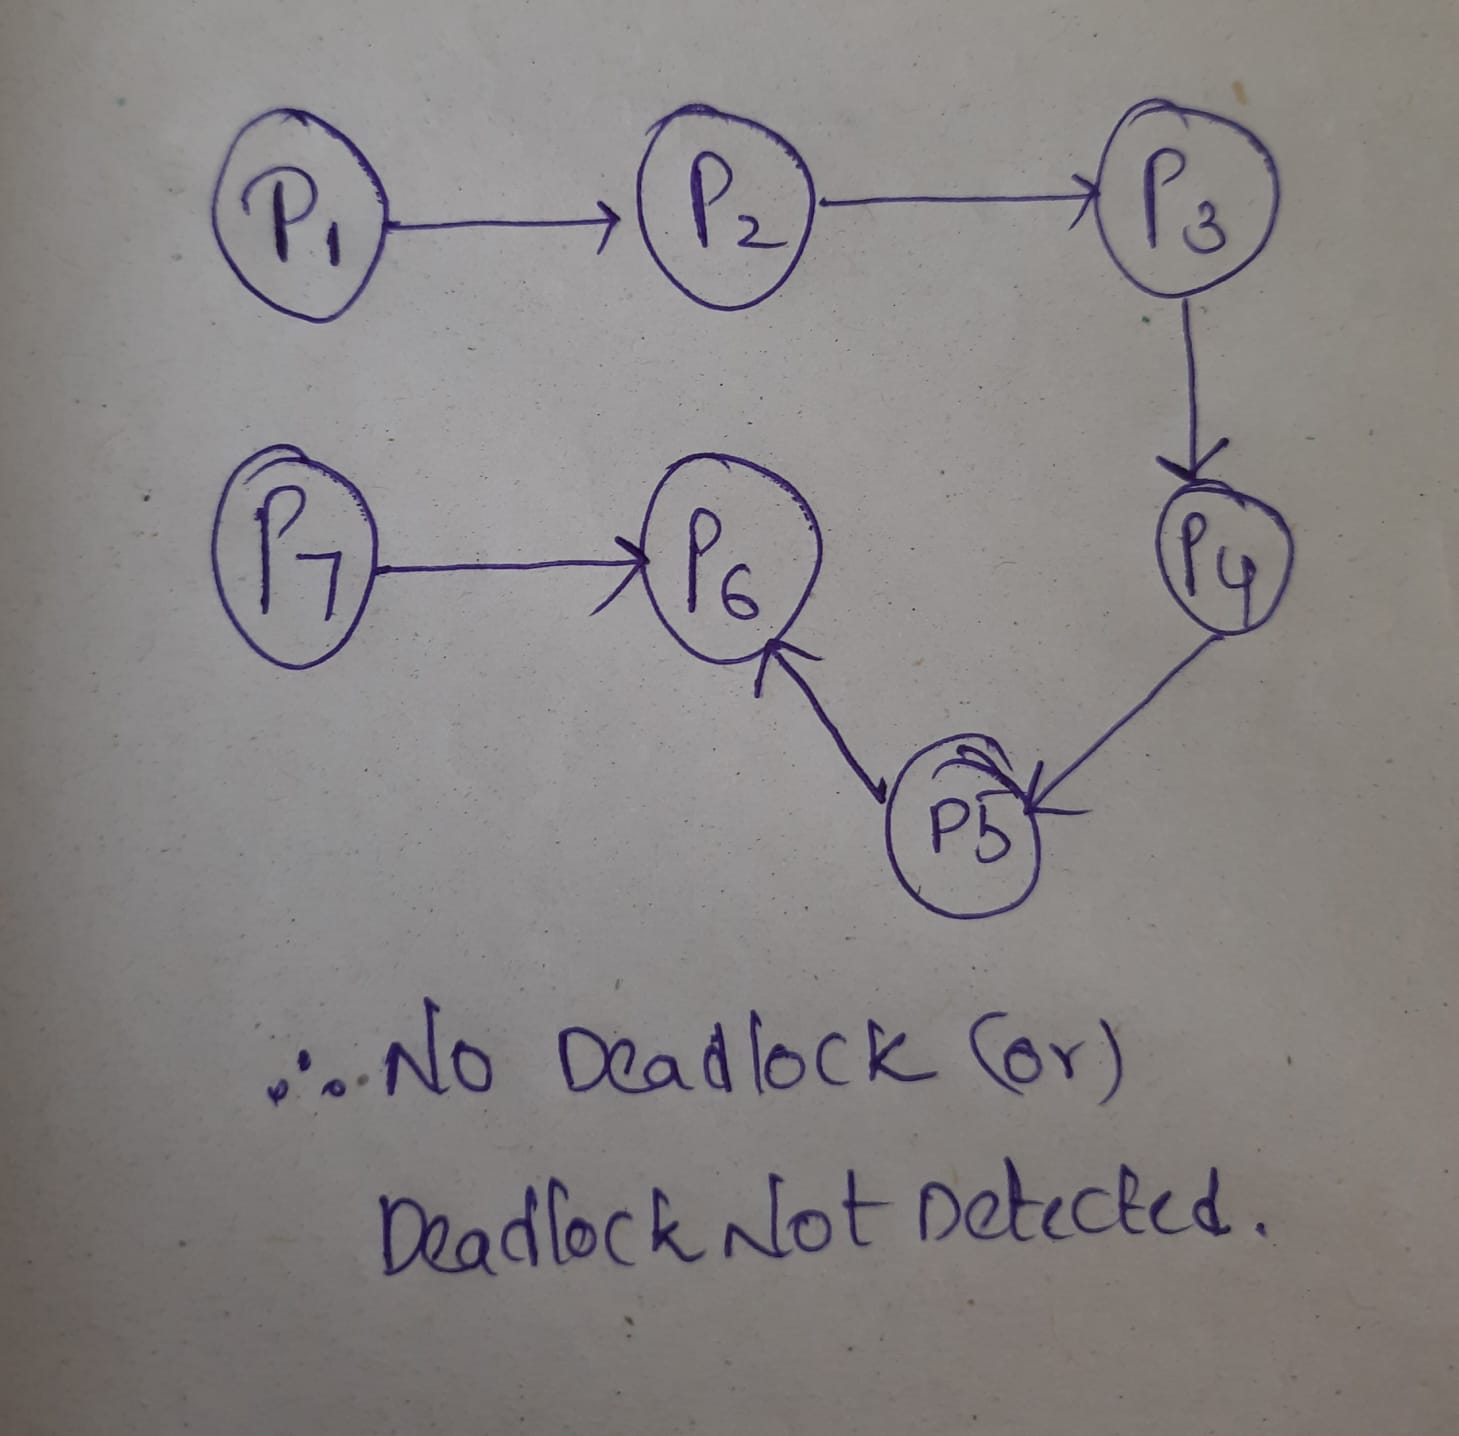 P1
P2
P3
P7
P6
P4
P5
∴ No Deadlock (or)
Deadlock Not Detected.